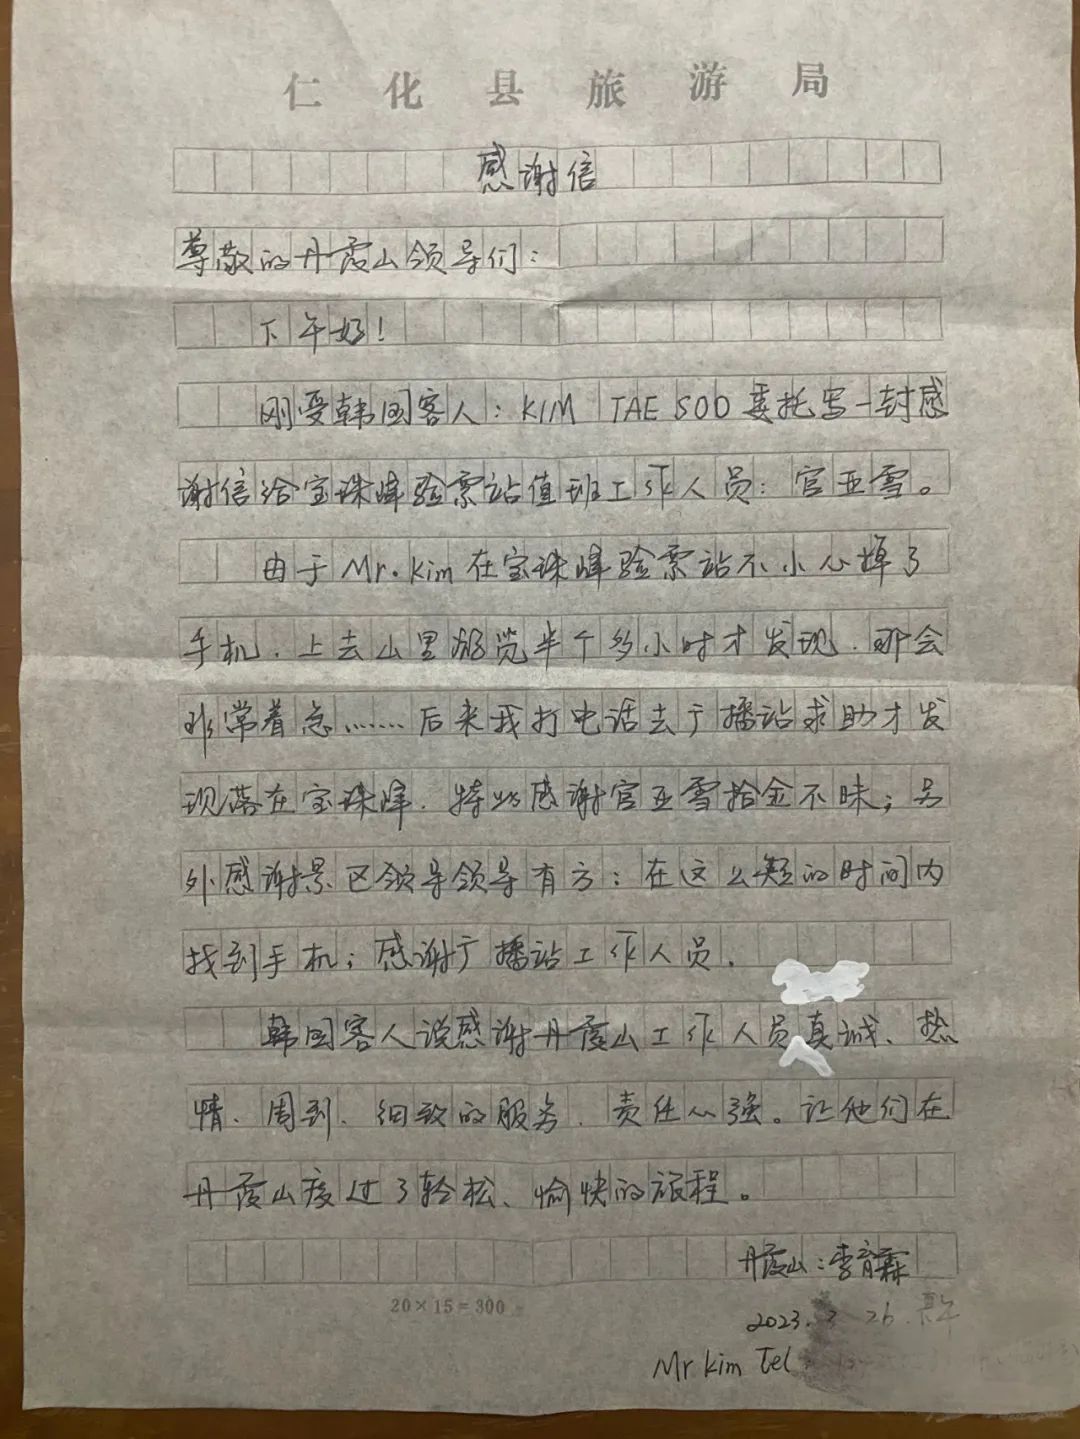 仁化县旅游局
感谢信
尊敬的丹霞山领导们：
下午好！
刚受韩国客人：KIM TAE SOO 委托写一封感
谢信给宝珠峰验票站值班工作人员：官亚雪。
由于Mr.Kim在宝珠峰验票站不小心掉了
手机．上去山里游览半个多小时才发现．那会
非常着急……后来我打电话去广播站求助才发
现落在宝珠峰．特此感谢官亚雪拾金不昧；另
外感谢景区领导领导有方；在这么短的时间内
找到手机；感谢广播站工作人员．
韩国客人说感谢丹霞山工作人员真诚、热
情、周到、细致的服务．责任心强。让他们在
丹霞山度过了轻松、愉快的旅程。
丹霞山：李育霖
20×15=300
2023. 26.
Mr Kim Tel